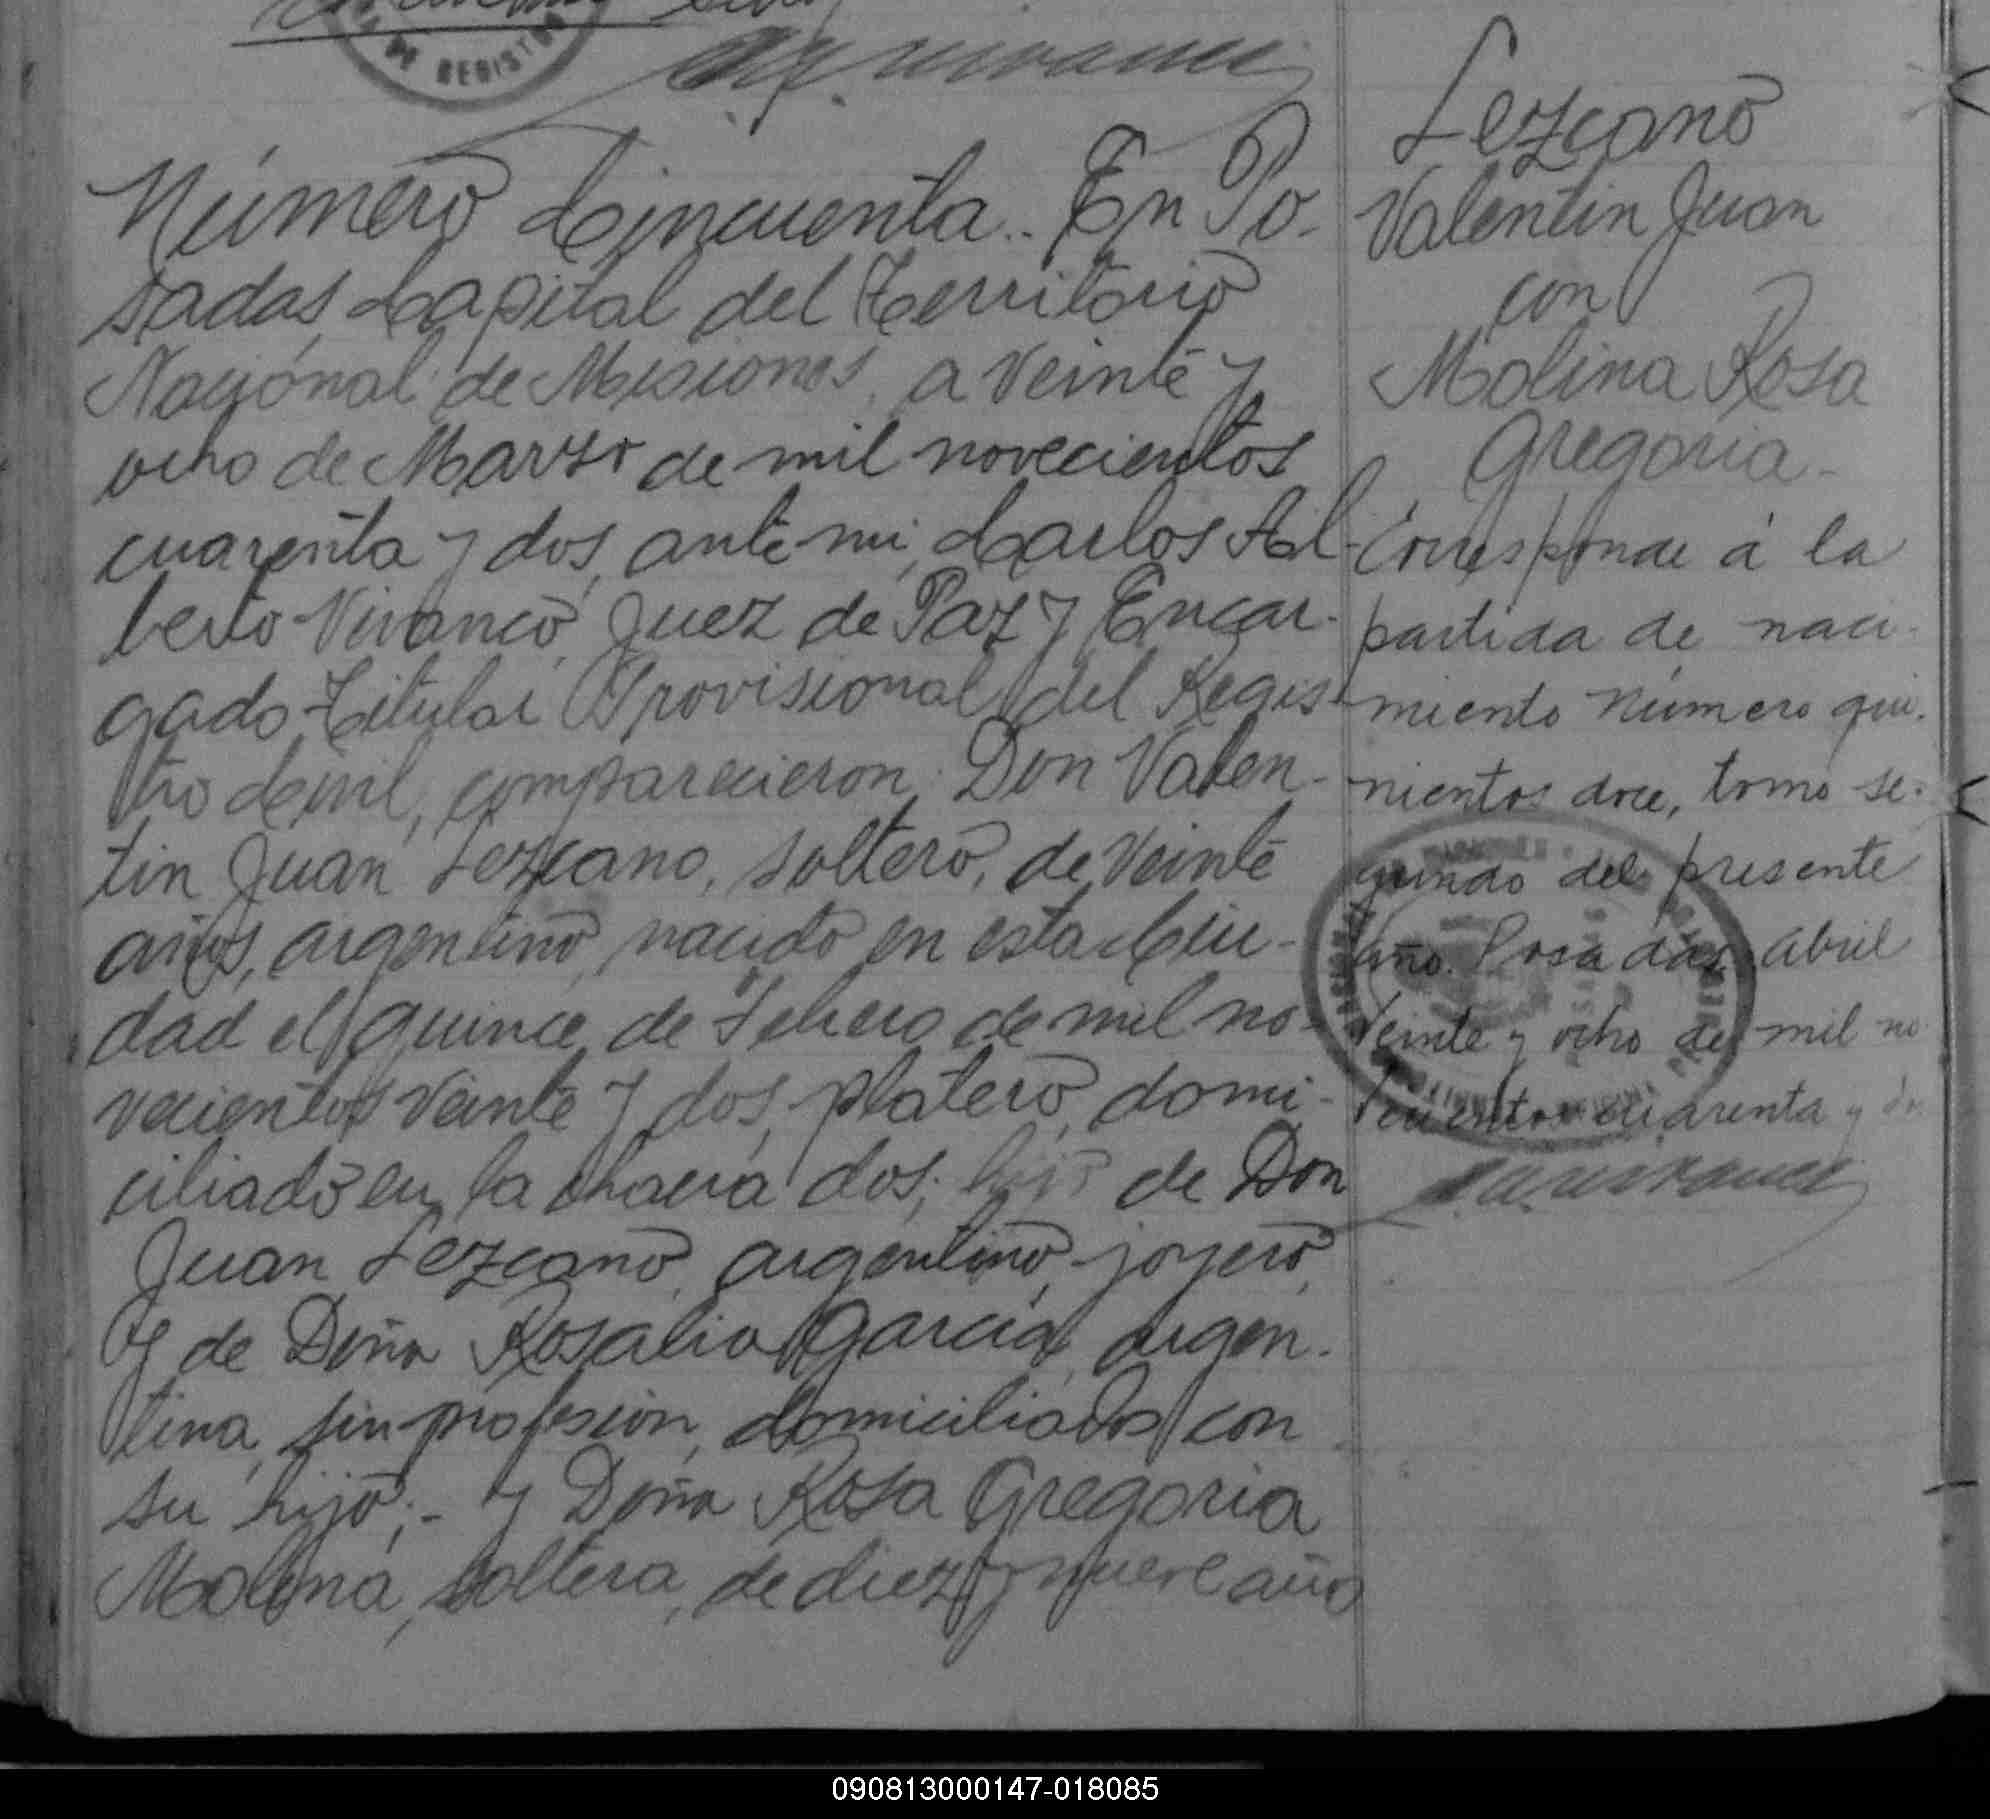 DE REGISTRO
Número Cincuenta.. En Po-
sadas, Capital del Territorio
Nacional de Misiones, a veinte y
ocho de Marzo de mil novecientos
cuarenta y dos, ante mi, Carlos Al-
berto Vivanco, Juez de Paz y Encar-
gado Titular Provisional del Regis-
tro Civil, comparecieron Don Valen-
tin Juan Lezcano, soltero, de veinte
años, argentino, nacido en esta Ciu-
dad el quince de Febrero de mil no-
vecientos veinte y dos, platero, domi-
ciliado en la chacra dos; hijo de Don
Juan Lezcano, argentino, joyero,
y de Doña Rosalia Garcia, argen-
tina, sin profesion, domiciliados con
su hijo;- y Doña Rosa Gregoria
Molina, soltera, de diez y nueve años
Lezcano
Valentin Juan
con
Molina Rosa
Gregoria-
Corresponde á la
partida de naci-
miento número qui-
nientos doce, tomo se-
gundo del presente
año. Posadas, Abril
veinte y ocho de mil no
vecientos cuarenta y dos
090813000147-018085